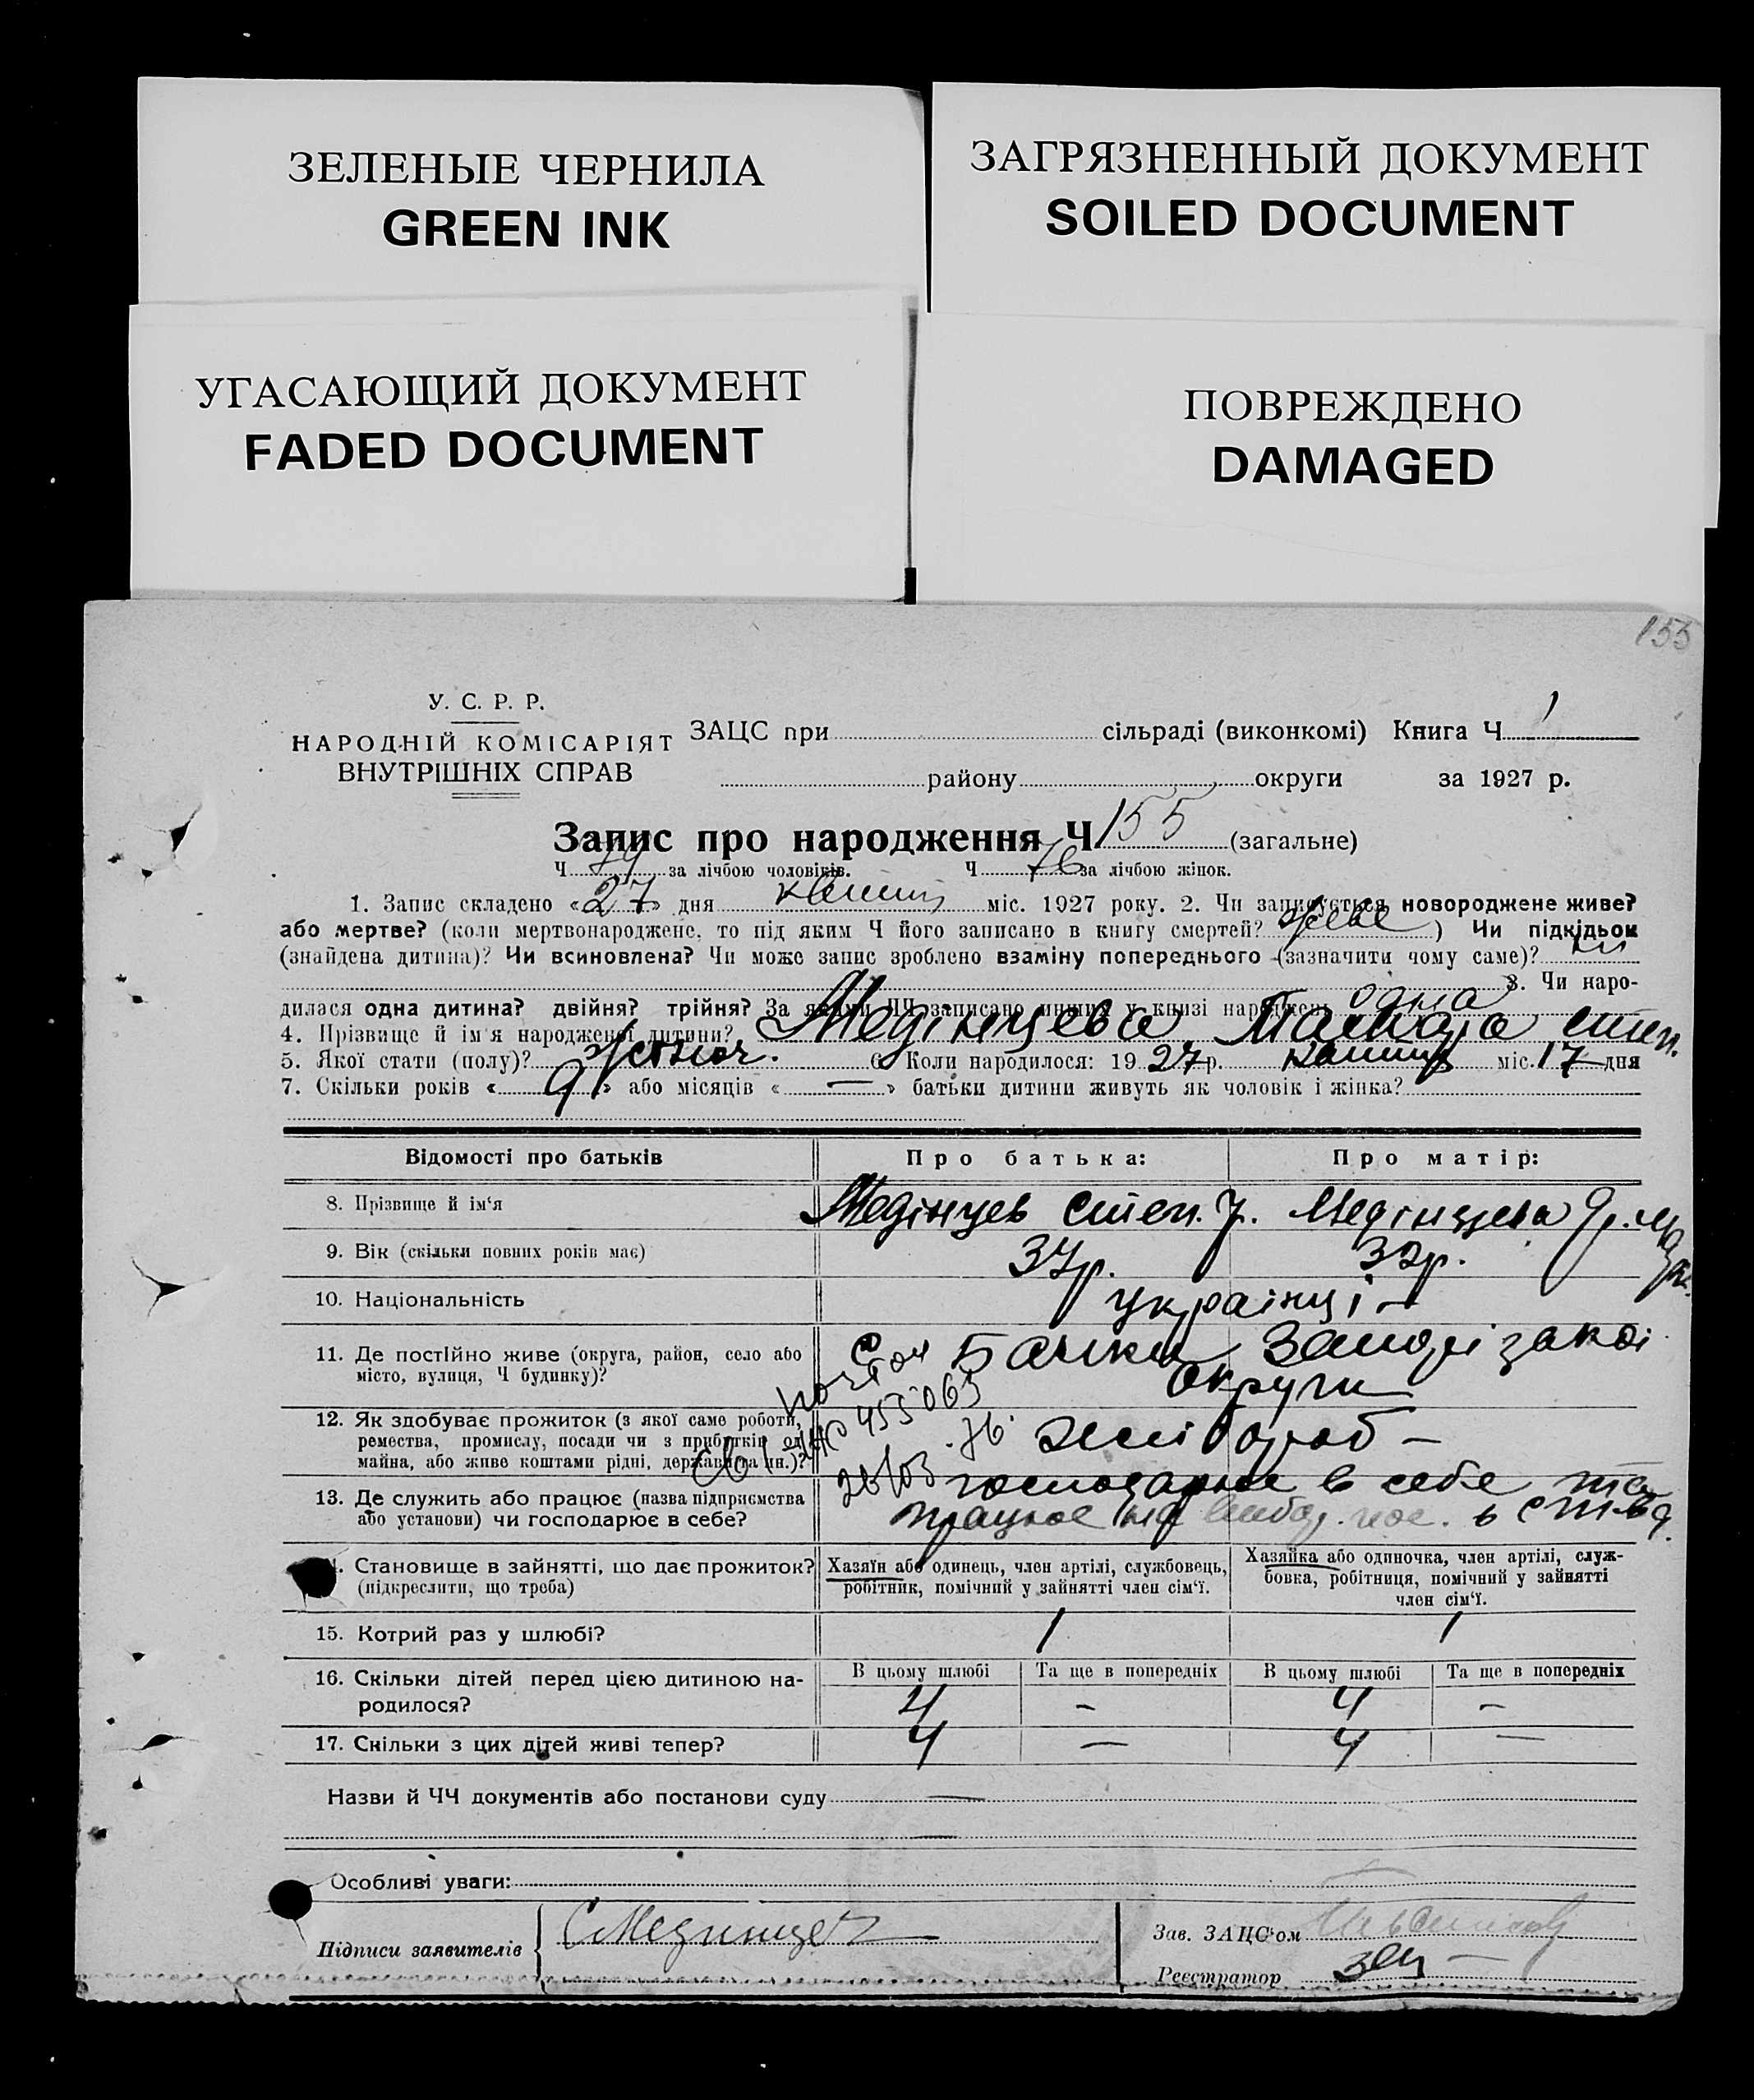 ЗЕЛЕНЫЕ ЧЕРНИЛА
GREEN INK
ЗАГРЯЗНЕННЫЙ ДОКУМЕНТ
SOILED DOCUMENT
УГАСАЮЩИЙ ДОКУМЕНТ
FADED DOCUMENT
ПОВРЕЖДЕНО
DAMAGED
155
У. С. Р. Р.
НАРОДНІЙ КОМІСАРІЯТ
ВНУТРІШНІХ СПРАВ
ЗАЦС при сільраді (виконкомі) Книга Ч 1
району округи за 1927 р.
Запис про народження Ч 155 (загальне)
Ч 79 за лічбою чоловіків. Ч 76 за лічбою жінок.
1. Запис складено «27» дня квітня міс. 1927 року. 2. Чи записується новороджене живе?
або мертве? (коли мертвонароджене, то під яким Ч його записано в книгу смертей? живе) Чи підкідьок
(знайдена дитина)? Чи всиновлена? Чи може запис зроблено взаміну попереднього (зазначити чому саме)? ні
3. Чи наро-
дилася одна дитина? двійня? трійня? За якими ЧЧ записано инших у книзі народжень одна
4. Прізвище й ім'я народженої дитини? Медінцева степ.
5. Якої стати (полу)? жіноч. 6 Коли народилося: 1927 р. квітня міс. 17 дня
7. Скільки років «9» або місяців «—» батьки дитини живуть як чоловік і жінка?
Відомості про батьків Про батька: Про матір:
8. Прізвище й ім'я Медінцев Степ. Медінцева
9. Вік (скільки повних років має) 37р. 32р.
10. Національність українці —
11. Де постійно живе (округа, район, село або
місто, вулиця, Ч будинку)? с Бачки Запорізької
округи
12. Як здобуває прожиток (з якої саме роботи,
ремества, промислу, посади чи з прибутків од
майна, або живе коштами рідні, держави та ин.)? хлібороб —
455065
26/03 .76.
13. Де служить або працює (назва підприємства
або установи) чи господарює в себе? господарює в себе та
працює на
14. Становище в зайнятті, що дає прожиток?
(підкреслити, що треба)
Хазяїн або одинець, член артілі, службовець,
робітник, помічний у зайнятті член сім'ї.
Хазяйка або одиночка, член артілі, служ-
бовка, робітниця, помічний у зайнятті
член сім'ї.
15. Котрий раз у шлюбі? 1 1
16. Скільки дітей перед цією дитиною на-
родилося?
В цьому шлюбі Та ще в попередніх В цьому шлюбі Та ще в попередніх
4 — 4 —
17. Скільки з цих дітей живі тепер? 4 — 4 —
Назви й ЧЧ документів або постанови суду —
—
Особливі уваги:
Підписи заявителів СМединцев
Зав. ЗАЦС'ом
Реєстратор